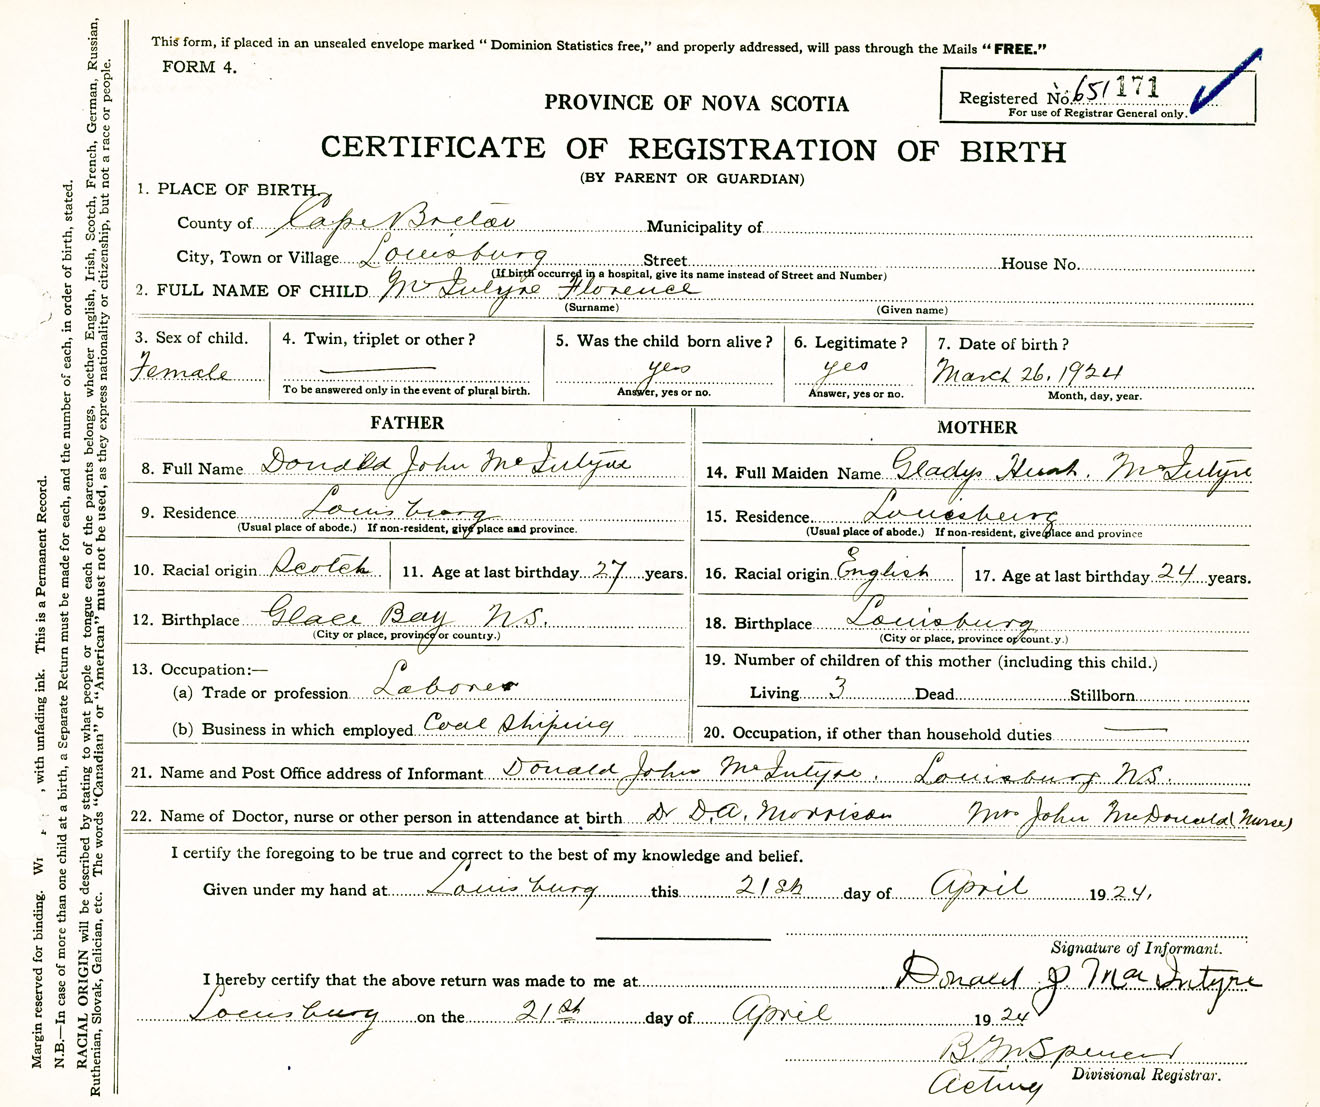 This form, if placed in an unsealed envelope marked " Dominion Statistics free," and properly addressed, will pass through the Mails " FREE."
FORM 4.
Registered No. 651171
For use of Registrar General only.
PROVINCE OF NOVA SCOTIA
CERTIFICATE OF REGISTRATION OF BIRTH
(BY PARENT OR GUARDIAN)
1. PLACE OF BIRTH
County of Cape Breton Municipality of
City, Town or Village Louisburg Street House No.
(If birth occurred in a hospital, give its name instead of Street and Number)
2. FULL NAME OF CHILD McIntyre Florence
(Surname) (Given name)
3. Sex of child. 4. Twin, triplet or other ? 5. Was the child born alive ? 6. Legitimate ? 7. Date of birth ?
Female — yes yes March 26, 1924
To be answered only in the event of plural birth. Answer, yes or no. Answer, yes or no. Month, day, year.
FATHER
8. Full Name Donald John McIntyre
9. Residence Louisburg
(Usual place of abode.) If non-resident, give place and province.
10. Racial origin Scotch 11. Age at last birthday 27 years.
12. Birthplace Glace Bay N.S.
(City or place, province or country.)
13. Occupation:—
(a) Trade or profession Laborer
(b) Business in which employed Coal Shiping
MOTHER
14. Full Maiden Name Gladys McIntyre
15. Residence Louisburg
(Usual place of abode.) If non-resident, give place and province
16. Racial origin English 17. Age at last birthday 24 years.
18. Birthplace Louisburg
(City or place, province or country.)
19. Number of children of this mother (including this child.)
Living 3 Dead Stillborn
20. Occupation, if other than household duties —
21. Name and Post Office address of Informant Donald John McIntyre. Louisburg N.S.
22. Name of Doctor, nurse or other person in attendance at birth Dr D.A. Morrison Mrs John McDonald (Nurse)
I certify the foregoing to be true and correct to the best of my knowledge and belief.
Given under my hand at Louisburg this 21st day of April 1924.
Signature of Informant.
Donald J MacIntyre
I hereby certify that the above return was made to me at
Louisburg on the 21st day of April 1924
B. M Spencer
Acting Divisional Registrar.
Margin reserved for binding. , with unfading ink. This is a Permanent Record.
N.B.—In case of more than one child at a birth, a Separate Return must be made for each, and the number of each, in order of birth, stated.
RACIAL ORIGIN will be described by stating to what people or tongue each of the parents belongs, whether English, Irish, Scotch, French, German, Russian,
Ruthenian, Slovak, Galician, etc. The words "Canadian" or "American" must not be used, as they express nationality or citizenship, but not a race or people.